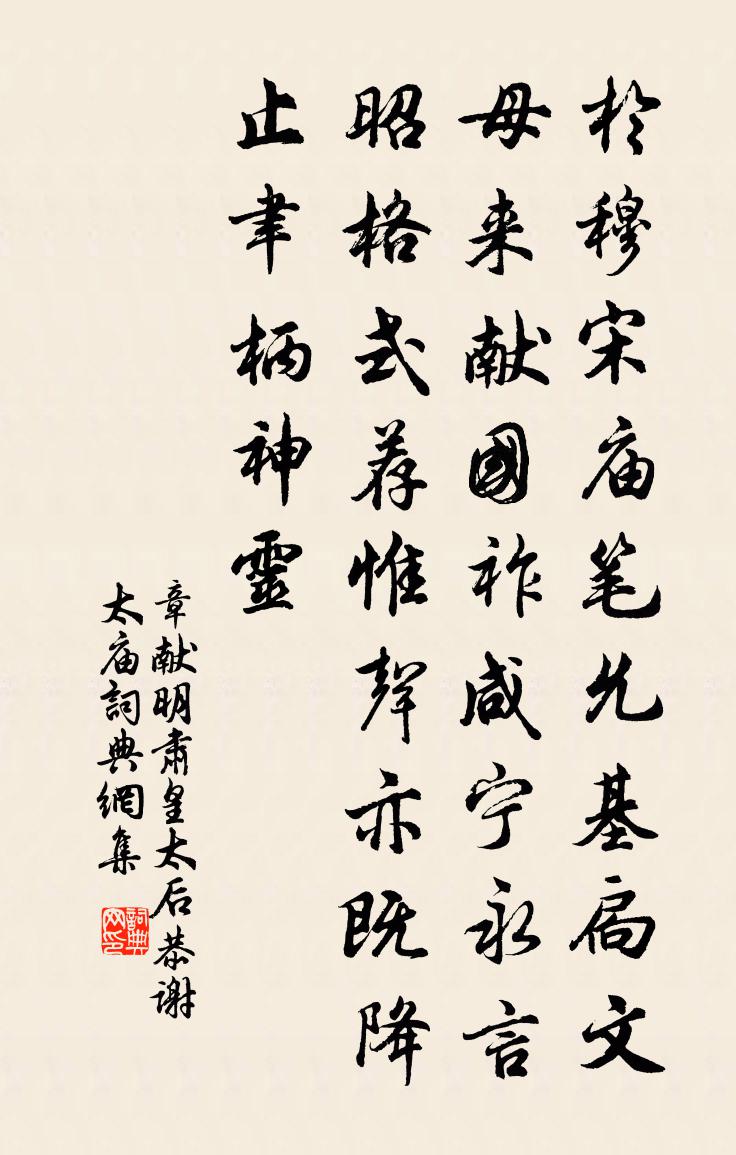 於穆宋庙笔允基扃文
母来献國祚咸宁永言
昭格式荐惟聲亦既降
止聿柄神靈
章献明肅皇太后恭谢
太庙詞典網集
詞典网印